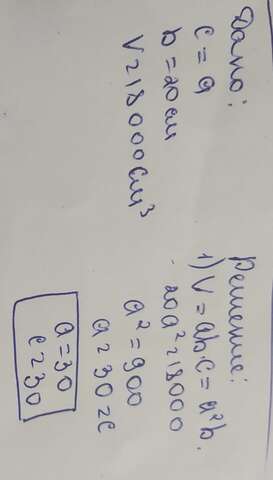 Дано:
c = a
b = 20 см
V = 18000 см³
Решение:
1) V = abc = a²b.
20a² = 18000
a² = 900
a = 30 = c
a = 30
c = 30